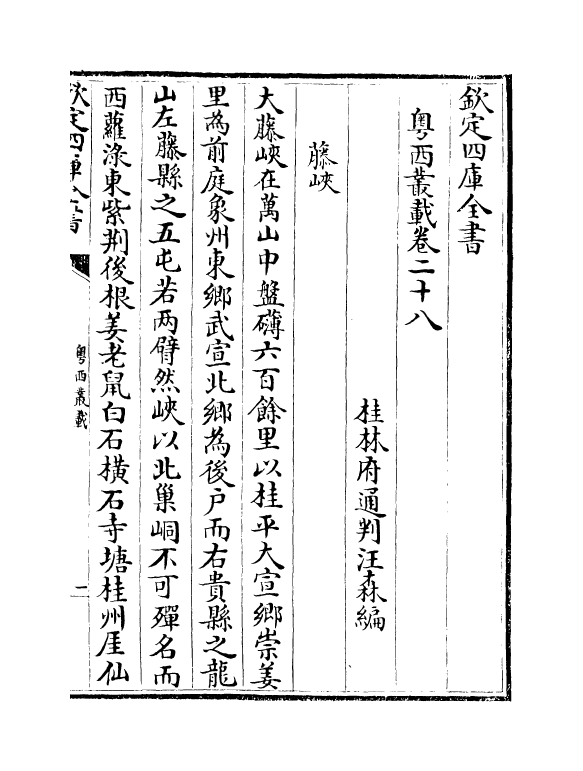 欽定四庫全書
粵西叢載卷二十八
桂林府通判汪森編
藤峽
大藤峽在萬山中盤礴六百餘里以桂平大宣鄉崇姜
里為前庭象州東鄉武宣北鄉為後户而右貴縣之龍
山左藤縣之五屯若两臂然峽以北巢峒不可殫名而
西蘿淥東紫荆後根姜老鼠白石橫石寺塘桂州厓仙
欽定四庫全書
粵西叢載